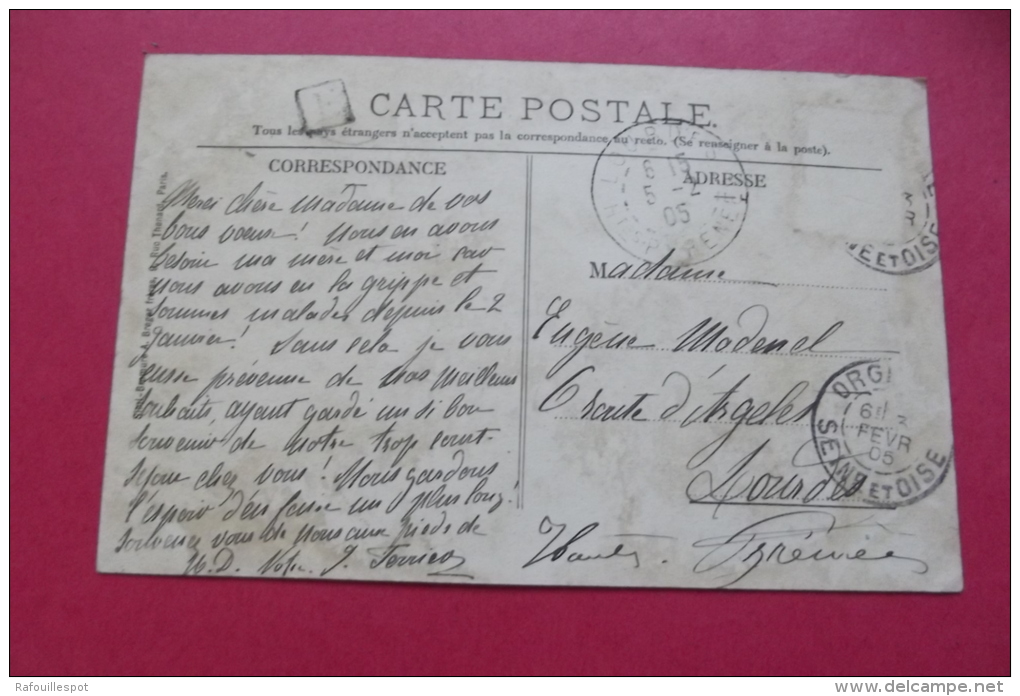 CARTE POSTALE.
Tous les pays étrangers n'acceptent pas la correspondance au recto. (Se renseigner à la poste).
CORRESPONDANCE
ADRESSE
Merci chère Madame de vos
bons voeux! Nous en avons
besoin ma mère et moi car
nous avons eu la grippe et
sommes malades depuis le 2
janvier! Sans cela je vous
eusse prévenue de nos meilleurs
souhaits, ayant gardé un si bon
souvenir de notre trop court
séjour chez vous! Nous gardons
l'espoir d'en faire un plus long!
Souvenez vous de nous aux pieds de
N. D.
Madame
Eugène
route d'Argelès
Lourdes
Hautes Pyrénées
05
ET OISE
ORG
FEVR
05
SEINE ET OISE
Rafouillespot
www.delcampe.net